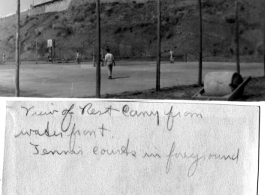 View of Rest Camp from
water front.
Tennis courts in foreground